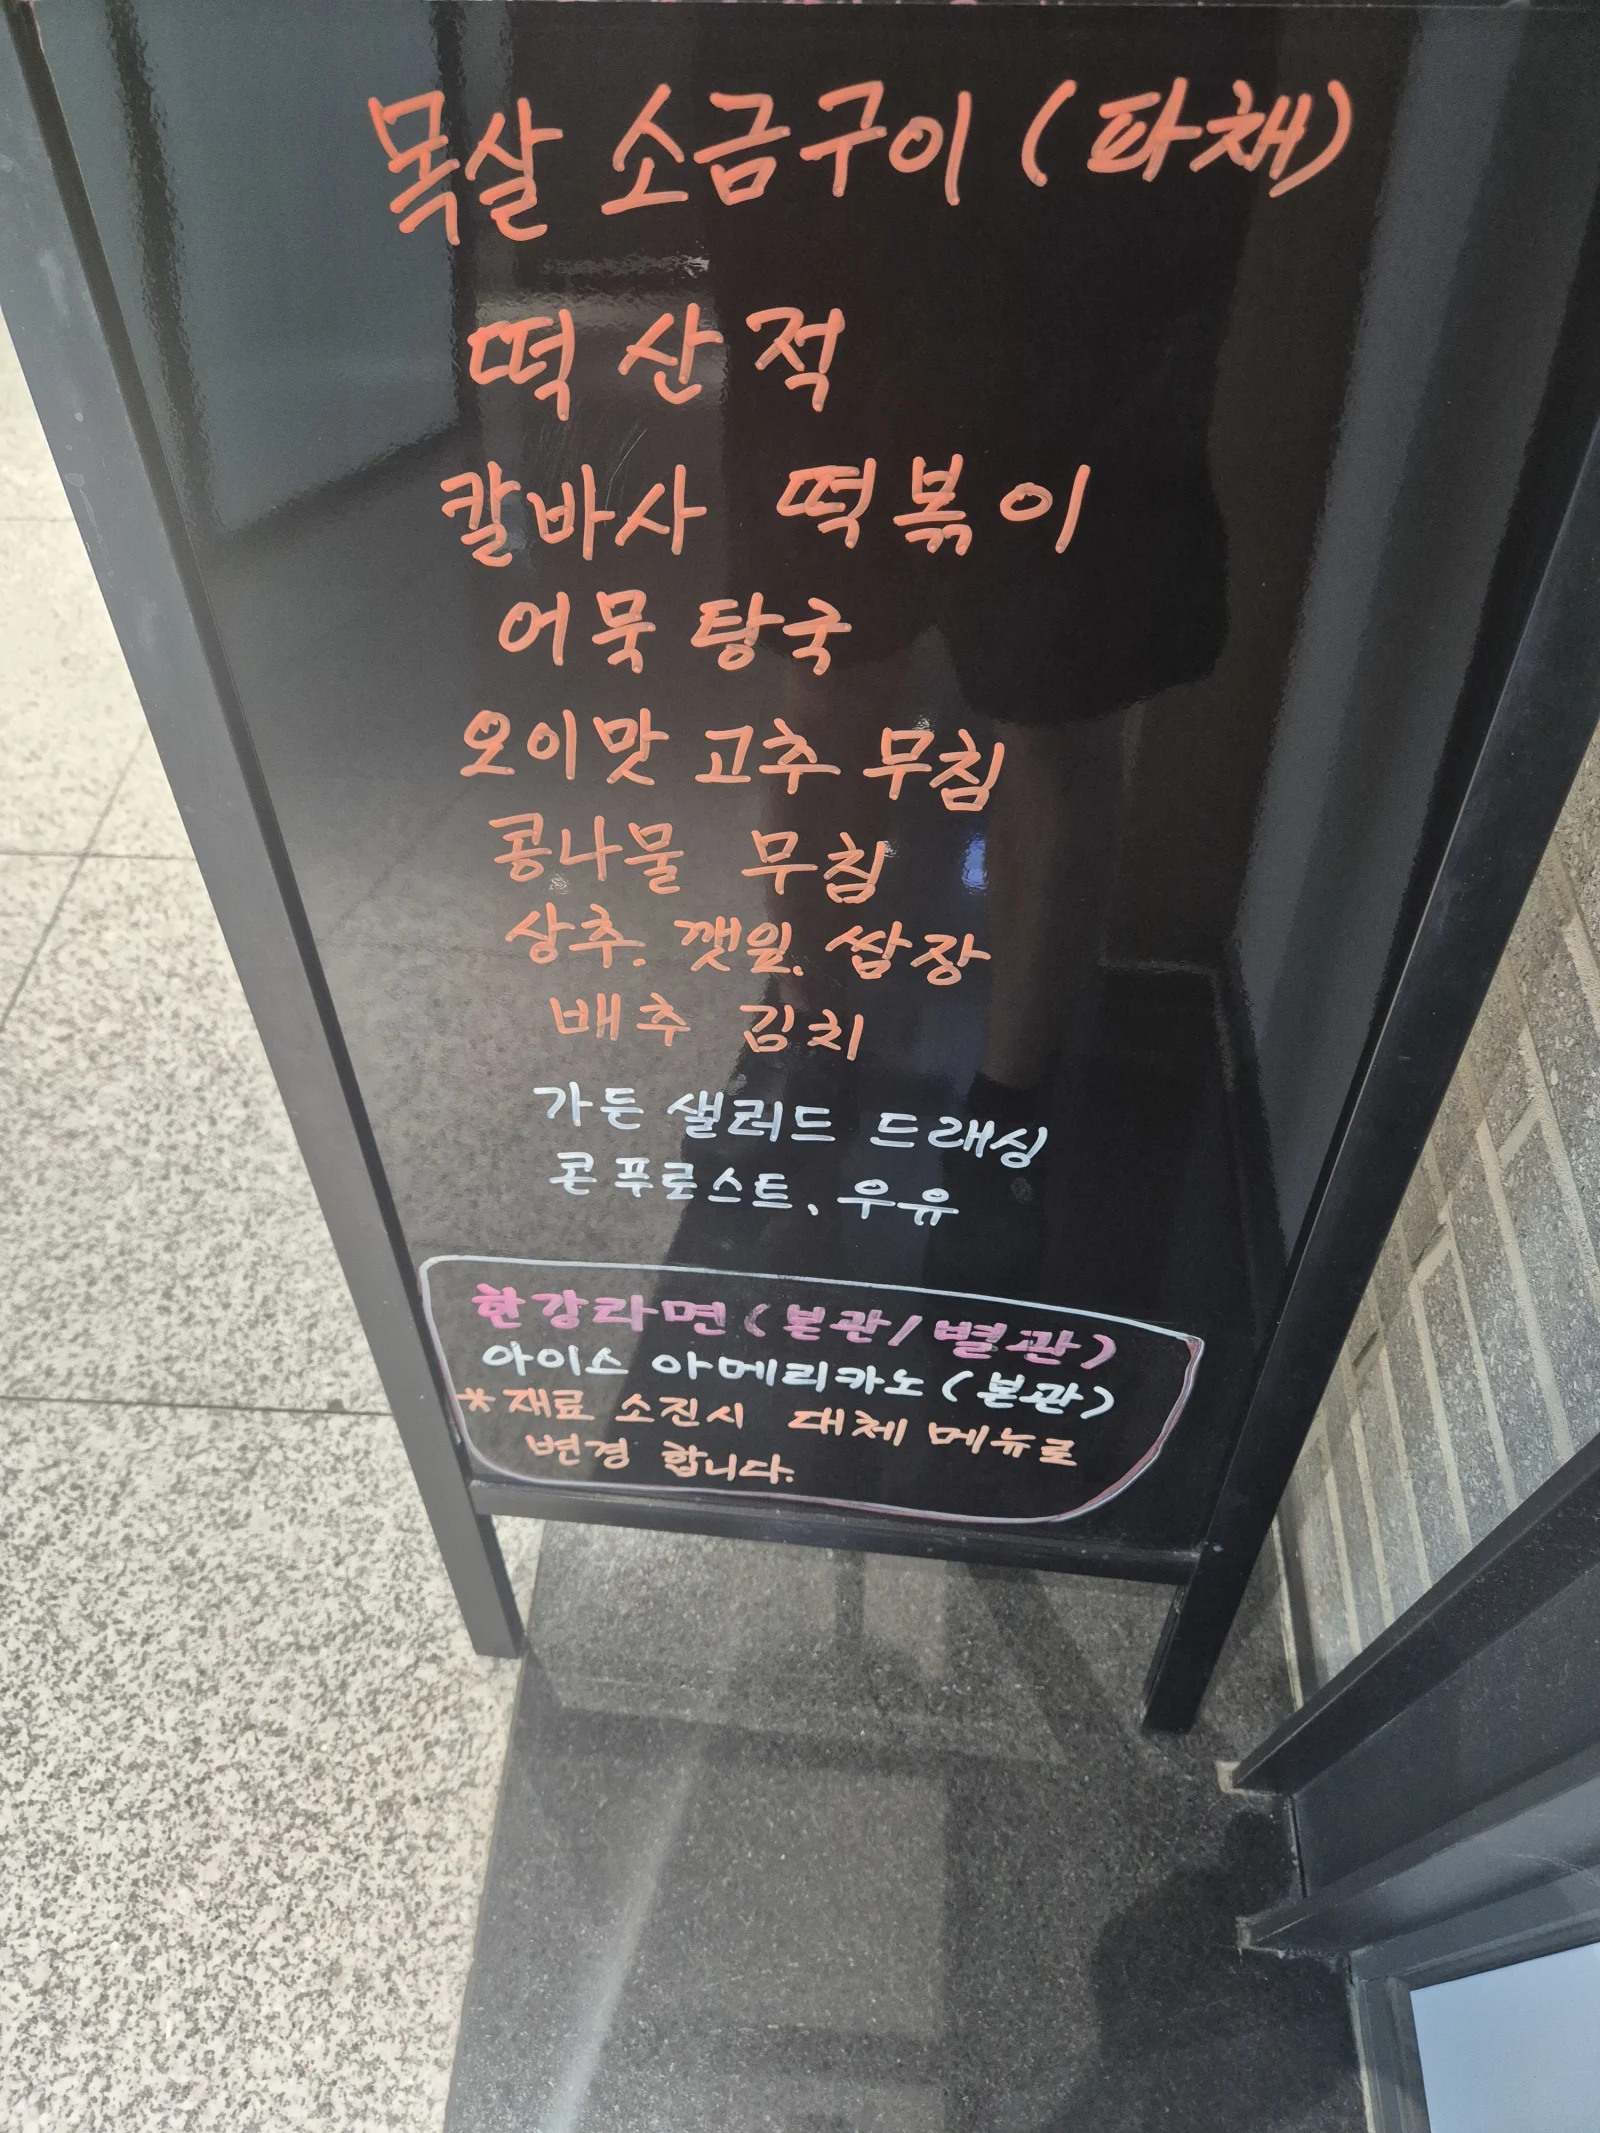 목살 소금구이 (파채)
떡산적
칼바사 떡볶이
어묵 탕국
오이맛 고추 무침
콩나물 무침
상추. 깻잎. 쌈장
배추 김치
가든 샐러드 드래싱
콘푸로스트, 우유
한강라면 (본관/별관)
아이스 아메리카노 (본관)
*재료 소진시 대체 메뉴로
변경 합니다.